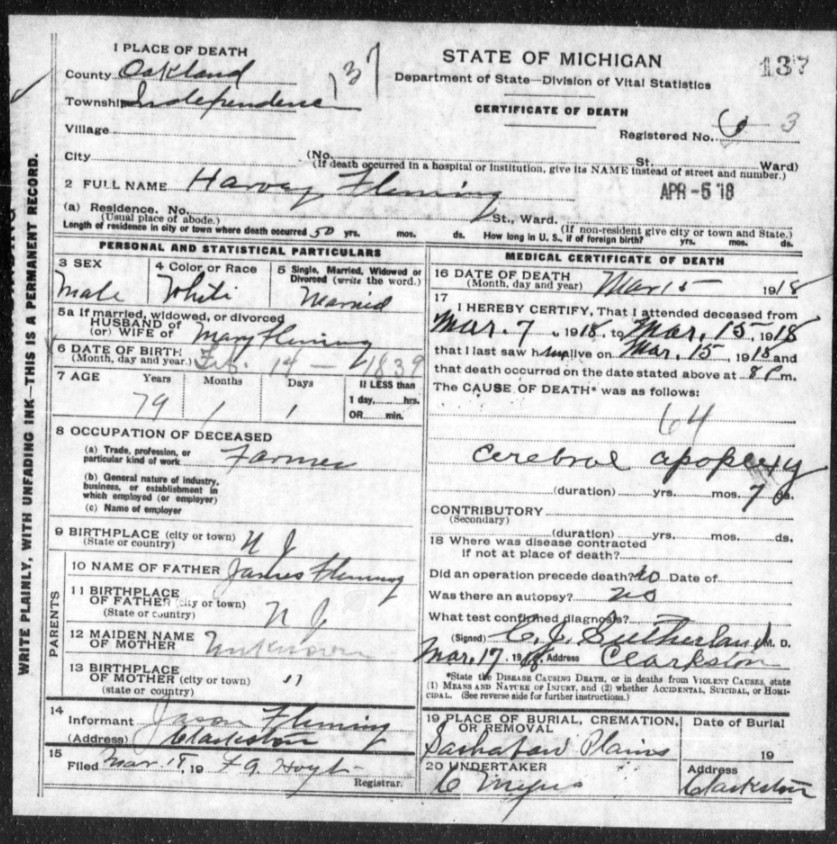 1 PLACE OF DEATH
STATE OF MICHIGAN
137
County Oakland
137
Department of State—Division of Vital Statistics
Township Independence
CERTIFICATE OF DEATH
Village
Registered No. 3
City (No. St. Ward)
(If death occurred in a hospital or institution, give its NAME instead of street and number.)
2 FULL NAME Harvey Fleming
APR -5 '18
(a) Residence. No. St., Ward.
(Usual place of abode.) (If non-resident give city or town and State.)
Length of residence in city or town where death occurred 50 yrs. mos. ds. How long in U. S., if of foreign birth? yrs. mos. ds.
PERSONAL AND STATISTICAL PARTICULARS
3 SEX
Male
4 Color or Race
White
5 Single, Married, Widowed or
Divorced (write the word.)
Married
5a If married, widowed, or divorced
HUSBAND of
(or) WIFE of Mary Fleming
6 DATE OF BIRTH
(Month, day and year.) Feb. 14 — 1839
7 AGE Years Months Days If LESS than
1 day, hrs.
OR min.
79 1 1
8 OCCUPATION OF DECEASED
(a) Trade, profession, or
particular kind of work Farmer
(b) General nature of industry,
business, or establishment in
which employed (or employer)
(c) Name of employer
9 BIRTHPLACE (city or town)
(State or country) N J
PARENTS
10 NAME OF FATHER James Fleming
11 BIRTHPLACE
OF FATHER (city or town)
(State or country) N J
12 MAIDEN NAME
OF MOTHER Unknown
13 BIRTHPLACE
OF MOTHER (city or town) "
(state or country)
14
Informant Jason Fleming
(Address) Clarkston
15
Filed Mar 18, 19 F A Hoyt
Registrar.
MEDICAL CERTIFICATE OF DEATH
16 DATE OF DEATH
(Month, day and year) Mar 15 1918
17
I HEREBY CERTIFY, That I attended deceased from
Mar. 7, 1918, to Mar. 15, 1918
that I last saw him alive on Mar. 15, 1918 and
that death occurred on the date stated above at 8 P. m.
The CAUSE OF DEATH* was as follows:
64
Cerebral apoplexy
(duration) yrs. mos. 7 ds.
CONTRIBUTORY
(Secondary)
(duration) yrs. mos. ds.
18 Where was disease contracted
if not at place of death?
Did an operation precede death? No Date of
Was there an autopsy? no
What test confirmed diagnosis?
(Signed) C. J. Sutherland M. D.
Mar. 17, 1918 Address Clarkston
*State the DISEASE CAUSING DEATH, or in deaths from VIOLENT CAUSES, state
(1) MEANS AND NATURE OF INJURY, and (2) whether ACCIDENTAL, SUICIDAL, or HOMI-
CIDAL. (See reverse side for further instructions.)
19 PLACE OF BURIAL, CREMATION,
OR REMOVAL
Date of Burial
Sashabaw Plains 19
20 UNDERTAKER
Address
C Clarkston
WRITE PLAINLY, WITH UNFADING INK—THIS IS A PERMANENT RECORD.